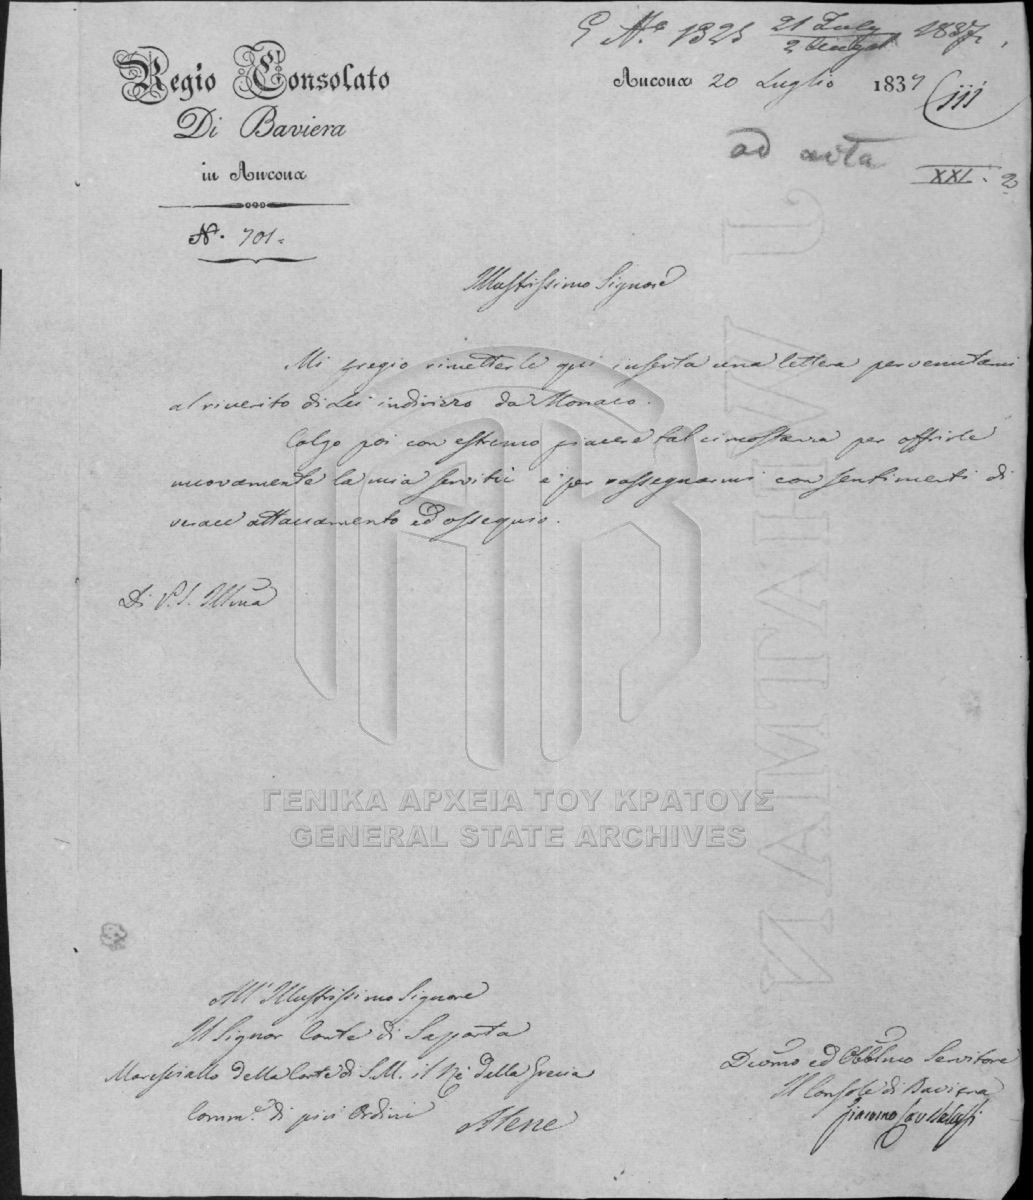 E Nº 1325 21 July / 2 August 1837.
Regio Consolato
Di Baviera
in Ancona
Nº. 701.
Ancona 20 Luglio 1837
ad acta
XXI. 2
Illustrissimo Signore
Mi pregio rimetterle qui inserta una lettera pervenutami
al riverito di Lei indirizzo da Monaco.
Colgo poi con estremo piacere tal circostanza per offrirle
nuovamente la mia servitù e per rassegnarmi con sentimenti di
verace attaccamento ed ossequio.
Di V. S. Illma
ΓΕΝΙΚΑ ΑΡΧΕΙΑ ΤΟΥ ΚΡΑΤΟΥΣ
GENERAL STATE ARCHIVES
J WHATMAN
All' Illustrissimo Signore
Il Signor Conte di Sapporta
Maresciallo della Corte di S. M. il Rè della Grecia
Comm.e di più Ordini
Atene
Devmo ed Obblmo Servitore
Il Console di Baviera
Giacomo